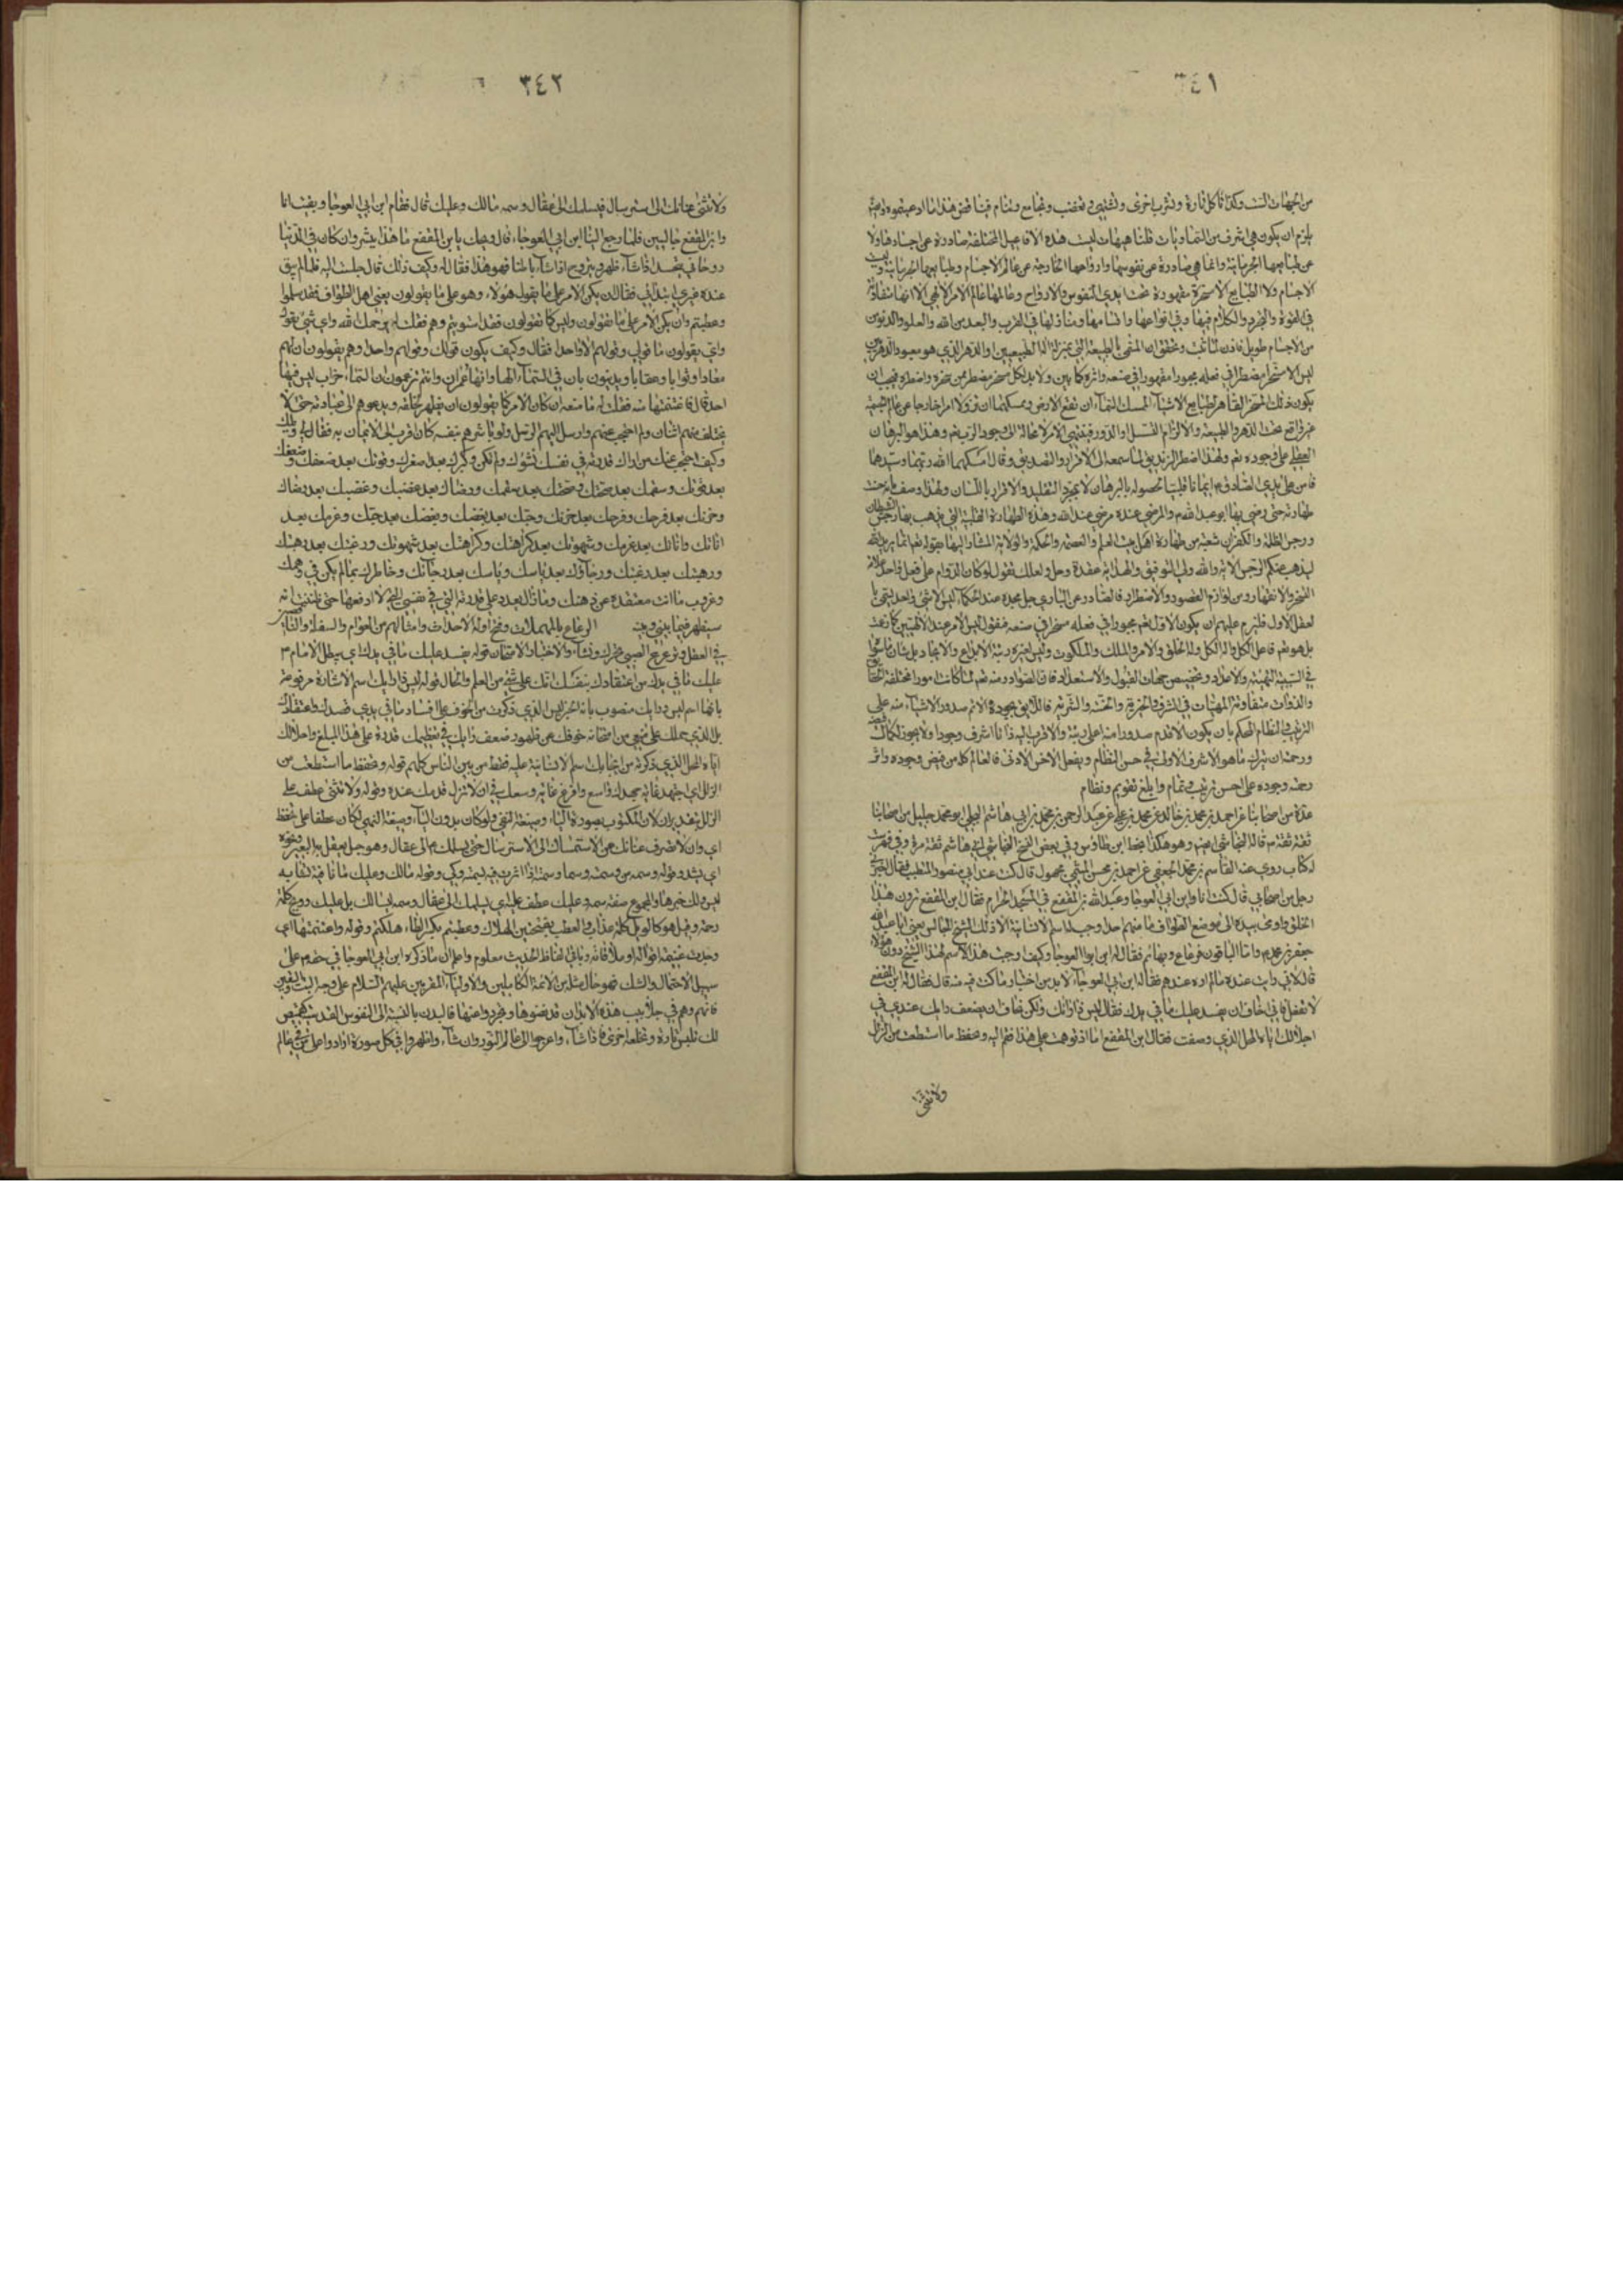 ٣٤١
من الجهات الست وكذا تأكل تارة وتشرب اخرى وتشتهي وتغضب وتجامع وتنام فيناقض هذا ما ادعيتموه
يلزم ان يكون هي اشرف من السماويات قلنا هيهات ليست هذه الافاعيل المختلفة صادرة عن اجسادها ولا
عن طبايعها الجرمانية وانما هي صادرة عن نفوسها وارواحها الخارجة عن عالم الاجسام وطبايعها الجرمانية وليست
الاجسام ولا الطبايع الا مسخرة مقهورة تحت ايدي النفوس والارواح وعالمها عالم الامر الالهي الا انها متفاوتة
في القوة والتجرد والكلام فيها وفي انواعها واقسامها ومنازلها في القرب والبعد من الله والعلو والدنو من
من الاجسام طويل فاذن لما ثبت وتحقق ان المسمى بالطبيعة التي بمنزلة اله الطبيعيين والدهر الذي هو معبود الدهريين
ليس الا مسخرا مضطرا في فعله مجبورا مقهورا في صنعه واثره كما بين ولا بد لكل مسخر مضطر من مسخر واضطره فيجب ان
يكون ذلك المسخر القاهر لطبايع الاشياء الممسك للسماء ان تقع على الارض وممسكهما ان تزولا امرا خارجا عن عالم الطبيعة
غير واقع تحت الدهر والطبيعة والا لزم التسلسل او الدور فينتهي الامر لا محالة الى وجود الرب تعالى وهذا هو البرهان
العقلي على وجوده تعالى ولهذا اضطر الزنديق لما سمعه الى الاقرار والتصديق وقال امسكهما الله ربهما وسيدهما
فامن على يدي الصادق ع ايمانا قلبيا لحصوله بالبرهان لا بمجرد التقليد والاقرار باللسان ولهذا وصف
طهارته حتى رضي بها ابو عبد الله ع والمرضي عنده مرضي عند الله وهذه الطهارة القلبية التي يذهب بها رجس الشيطان
ورجس الظلمة والكفران شعبة من طهارة اهل بيت العلم والعصمة والحكمة والولاية المشار اليها بقوله تعالى انما يريد الله
ليذهب عنكم الرجس الاية والله ولي التوفيق والهداية عقدة وحل ولعلك تقول لو كان الدوام على فعل واحد علامة
التسخر والانقهار ومن لوازم القصور والاضطرار فالصادر عن الباري جل مجده عند الحكماء ليس الا شيء واحد يسمى با
لعقل الاول فلزم عليهم ان يكون الاول تعالى مجبورا في فعله مسخرا في صنعه فنقول ليس الامر عند الالهيين كما زعمت
بل هو تعالى فاعل الكل واله الكل وله الخلق والامر والملك والملكوت وليس لغيره رتبة الابداع والايجاد بل شان ما سواه
في السببية التهيئة والاعداد وتخصيص جهات القبول والاستعداد فان الصوادر منه تعالى لما كانت امورا مختلفة الحقايق
والذوات متفاوتة المهيات في الشرف والخيرية والخسة والشرية فاللايق بجوده الاتم صدور الاشياء منه على
الترتيب والنظام المحكم بان يكون الاقدم صدورا منه اعلى رتبة والاقرب اليه ذاتا اشرف وجودا ولا يجوز
ورحمته ان يترك ما هو الاشرف الاولى في حسن النظام ويفعل الاخس الادنى فالعالم كله من فيض وجوده واثر
رحمة وجوده على احسن ترتيب وتمام وابلغ تقويم ونظام
عدة من اصحابنا عن احمد بن محمد بن خالد عن محمد بن علي عن عبد الرحمن بن محمد بن ابي هاشم البجلي ابو محمد جليل من اصحابنا
ثقة ثقة قاله النجاشي وهو هكذا بخط ابن طاوس وفي بعض النسخ النجاشي ابي هاشم ثقة مرة وفي فهرست
له كتاب روى عنه القاسم بن محمد الجعفي عن احمد بن محسن الميثمي مجهول قال كنت عند ابي منصور المتطبب فقال اخبرني
رجل من اصحابي قال كنت انا وابن ابي العوجا وعبد الله بن المقفع في المسجد الحرام فقال ابن المقفع ترون هذا
الخلق واومى بيده الى موضع الطواف ما منهم احد اوجب له اسم الانسانية الا ذلك الشيخ الجالس يعني ابا عبد الله
جعفر بن محمد ع واما الباقون فرعاع وبهائم فقال له ابن ابي العوجا وكيف اوجبت هذا الاسم لهذا الشيخ دون هؤلاء
قال لاني رايت عنده ما لم اره عندهم فقال ابن ابي العوجاء لا بد من اختبار ما قلت فيه منه قال فقال له ابن المقفع
لا تفعل فاني اخاف ان يفسد عليك ما في يدك فقال ليس ذا رايك ولكن تخاف ان يضعف رايك عندي في
احلالك اياه المحل الذي وصفت فقال ابن المقفع اما اذ توهمت علي هذا فقم اليه وتحفظ ما استطعت من الزلل
ولا تثني
٣٤٢
ولا تثني عنانك الى استرسال فيسلمك الى عقال وسمه مالك وعليك قال فقام ابن ابي العوجا وبقيت انا
وابن المقفع جالسين فلما رجع الينا ابن ابي العوجاء قال ويلك يا بن المقفع ما هذا ببشر وان كان في الدنيا
روحاني يتجسد اذا شاء ظاهرا ويتروح اذا شاء باطنا فهو هذا فقال له وكيف ذلك قال جلست اليه فلما لم يبق
عنده غيري ابتداني فقال ان يكن الامر على ما يقول هؤلاء وهو على ما يقولون يعني اهل الطواف فقد سلموا
وعطبتم وان يكن الامر على ما تقولون وليس كما تقولون فقد استويتم وهم فقلت له يرحمك الله واي شيء نقول
واي يقولون ما قولي وقولهم الا واحدا فقال وكيف يكون قولك وقولهم واحدا وهم يقولون ان لهم
معادا وثوابا وعقابا ويدينون بان في السماء الها وانها عمران وانتم تزعمون ان السماء خراب ليس فيها
احد قال فاغتنمتها منه فقلت له ما منعه ان كان الامر كما يقولون ان يظهر لخلقه ويدعوهم الى عبادته حتى لا
يختلف منهم اثنان ولم احتجب عنهم وارسل اليهم الرسل ولو باشرهم بنفسه كان اقرب الى الايمان به فقال لي ويلك
وكيف احتجب عنك من اراك قدرته في نفسك نشوك ولم تكن وكبرك بعد صغرك وقوتك بعد ضعفك وضعفك
بعد قوتك وسقمك بعد صحتك وصحتك بعد سقمك ورضاك بعد غضبك وغضبك بعد رضاك
وحزنك بعد فرحك وفرحك بعد حزنك وحبك بعد بغضك وبغضك بعد حبك وعزمك بعد
اناتك واناتك بعد عزمك وشهوتك بعد كراهتك وكراهتك بعد شهوتك ورغبتك بعد رهبتك
ورهبتك بعد رغبتك ورجاؤك بعد ياسك وياسك بعد رجائك وخاطرك بما لم يكن في وهمك
وعزوب ما انت معتقده عن ذهنك وما زال يعدد علي قدرته التي هي في نفسي التي لا ادفعها حتى ظننت انه
سيظهر فيما بيني وبينه الرعاع بالمهملات وفتح اوله الاحداث وامثالهم من العوام والسفلة
في العقل وترعرع الصبي تحرك ونشأ والاختبار الامتحان قوله يفسد عليك ما في يدك اي يبطل الامام ع
عليك ما في يدك من اعتقادك بنفسك انك على شيء من العلم والحال قوله ليس ذا رايك اسم الاشارة مرفوعة
بانها اسم ليس ورايك منصوب بانه خبر ليس الذي ذكرت من الخوف على افساد ما في يدي
بل الذي حملك على منعي من امتحانه خوفك عن ظهور ضعف رايك في تعظيمك قدره على هذا المبلغ واحلالك
اياه المحل الذي ذكرته من ايجابك اسم الانسانية عليه فقط من بين الناس كلهم قوله وتحفظ ما استطعت من
الزلل اي اجتهد غاية جهدك واسع وافرغ غاية وسعك في ان لا تزل قدمك عنده وقوله ولا تثني عطف على
الزلل بتقدير ان لان المكتوب بصورة الياء وصيغة النفي ولو كان بدون الياء وصيغة النهي لكان عطفا على تحفظ
اي وان لا تصرف عنانك من الاستمساك الى الاسترسال حتى يسلمك الى عقال وهو حبل يعقل به البعير ونحوه
اي يشد وقوله وسمه من وسمته وسما وسمة اذا اثرت فيه بسمة وكي وقوله مالك وعليك ما نافية
ليس ولك خبرها والمجموع صفة سمه وعليك عطف عليه اي يسلمك الى عقال وسمه ليسا لك بل عليك وويح كلمة
رحمة وقيل هو كالويل كلمة عذاب والعطب بفتحتين الهلاك وعطبتم بكسر الطاء هلكتم وقوله واغتنمتها اي
وجدت غنيمة وباقي الفاظ الحديث معلوم واعلم ان ما ذكره ابن ابي العوجا في حقه ع على
سبيل الاحتمال والشك فهو حال مثله من الائمة الكاملين والاولياء المقربين عليهم السلام على وجه البت واليقين
فانهم وهم في جلابيب هذه الابدان قد نفضوها وتجردوا عنها فالبدن بالنسبة الى النفوس القدسية كقميص
لك تلبس تارة وتخلعه اخرى فاذا شاء واعرجوا الى عالم النور وان شاء واظهروا في كل صورة ارادوا